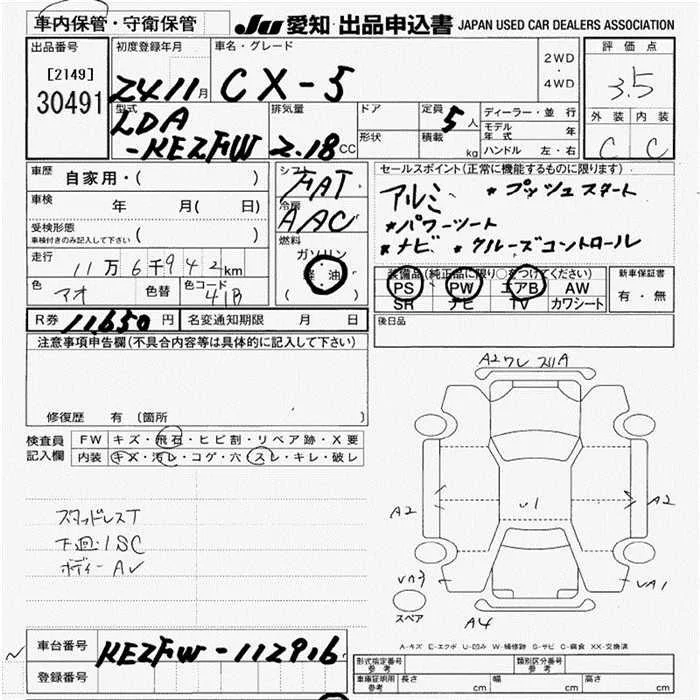 車内保管・守衛保管
JU 愛知 出品申込書 JAPAN USED CAR DEALERS ASSOCIATION
出品番号
[2149]
30491
初度登録年月
24 11月
車名・グレード
CX-5
2WD
・
4WD
評価点
3.5
外装 内装
C C
型式
LDA
-KE2FW
排気量
2.18 CC
ドア
形状
定員
5人
積載
kg
ディーラー・並行
モデル年式 年
ハンドル 左・右
車歴 自家用・( )
車検 年 月( 日)
受検形態
車検付きのみ記入して下さい ( )
走行 11万6千942km
色 アオ 色替 色コード 41B
シフト
FAT
冷房
AAC
燃料
ガソリン
軽油
( )
セールスポイント(正常に機能するものに限ります)
アルミ *プッシュスタート
*パワーシート
*ナビ *クルーズコントロール
装備品(純正品に限り○をつけてください)
PS PW エアB AW
SR ナビ TV カワシート
新車保証書
有・無
R券 11,650円 名変通知期限 月 日
後日品
注意事項申告欄(不具合内容等は具体的に記入して下さい)
修復歴 有 (箇所 )
検査員記入欄
FW キズ・飛石・ヒビ割・リペア跡・X要
内装 キズ・汚レ・コゲ・穴・スレ・キレ・破レ
スタッドレスT
下回・ISC
ボディーAU
A2ワレ スリA
A2
U1
A2
スペア
A4
UA1
A-キズ E-エクボ U-凹み W-補修跡 S-サビ C-腐食 XX-交換済
車台番号 KE2FW-112916
登録番号
形式指定番号 参考
類別区分番号 参考
車庫証明用 参考
長さ cm 幅 cm 高さ cm